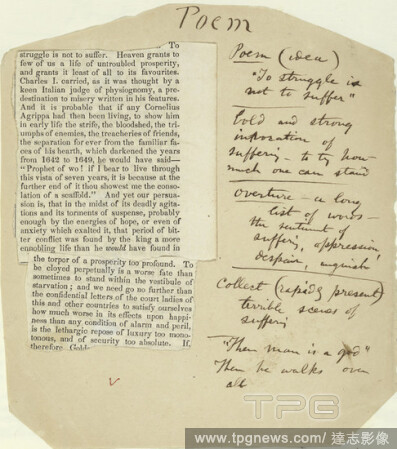 Poem
To
struggle is not to suffer. Heaven grants to
few of us a life of untroubled prosperity,
and grants it least of all to its favourites.
Charles I. carried, as it was thought by a
keen Italian judge of physiognomy, a pre-
destination to misery written in his features.
And it is probable that if any Cornelius
Agrippa had then been living, to show him
in early life the strife, the bloodshed, the tri-
umphs of enemies, the treacheries of friends,
the separation for ever from the familiar fa-
ces of his hearth, which darkened the years
from 1642 to 1649, he would have said—
"Prophet of wo! if I bear to live through
this vista of seven years, it is because at the
further end of it thou showest me the conso-
lation of a scaffold." And yet our persua-
sion is, that in the midst of its deadly agita-
tions and its torments of suspense, probably
enough by the energies of hope, or even of
anxiety which exalted it, that period of bit-
ter conflict was found by the king a more
ennobling life than he would have found in
the torpor of a prosperity too profound. To
be cloyed perpetually is a worse fate than
sometimes to stand within the vestibule of
starvation; and we need go no further than
the confidential letters of the court ladies of
this and other countries to satisfy ourselves
how much worse in its effects upon happi-
ness than any condition of alarm and peril,
is the lethargic repose of luxury too mono-
tonous, and of security too absolute. If,
therefore
Poem (idea)
"To struggle is
not to suffer"
bold and strong
invocation of
suffering — to try how
much one can stand
overture — a long
list of words —
the sentiment of
suffering, oppression
despair, anguish
Collect (rapidly present)
terrible scenes of
suffering
"Then man is a god"
Then he walks over
all
TPG
www.tpgnews.com / 達志影像